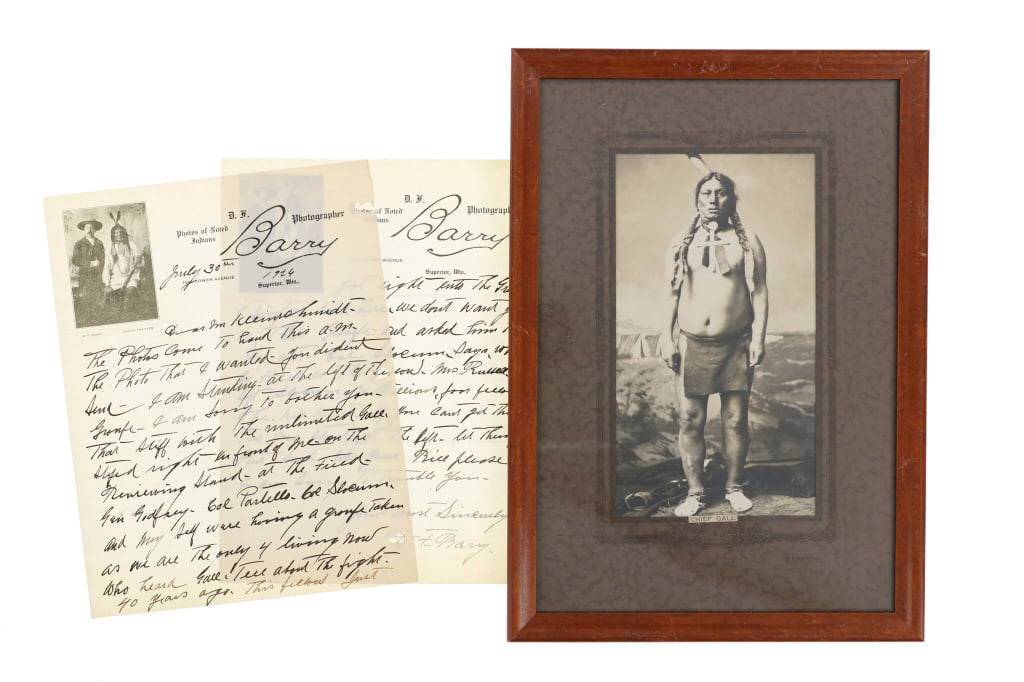 D. F. Barry Photographer
Photos of Noted Indians
POWER AVENUE
Superior, Wis.
July 30th 1926
Dear Mr Kleinschmidt-
The Photos Come to hand This a.m.
The Photo That I wanted you dident
Send - I am Standing at the left of the
Groupe - I am Sorry to bother you-
That Stiff with The unlimeted Gall
Steped right in front of me on the
Reviewing Stand - at the Field -
Gen Godfrey - Col Partello - Col Slocum
and My Self ware having a groupe taken
as we are the only 4 living now
who heard Gall Tell about The fight.
40 years ago. This fellow Just
D. F. Barry Photograph
Photos of Noted Indians
AVENUE
Superior, Wis.
right into The Gr
we dont want y
and asked him
Slocum Says.
Mrs
fellow
You Cant get th
left. let Them
Price please
you-
ost Sincerely
F. Barry.
CHIEF GALL